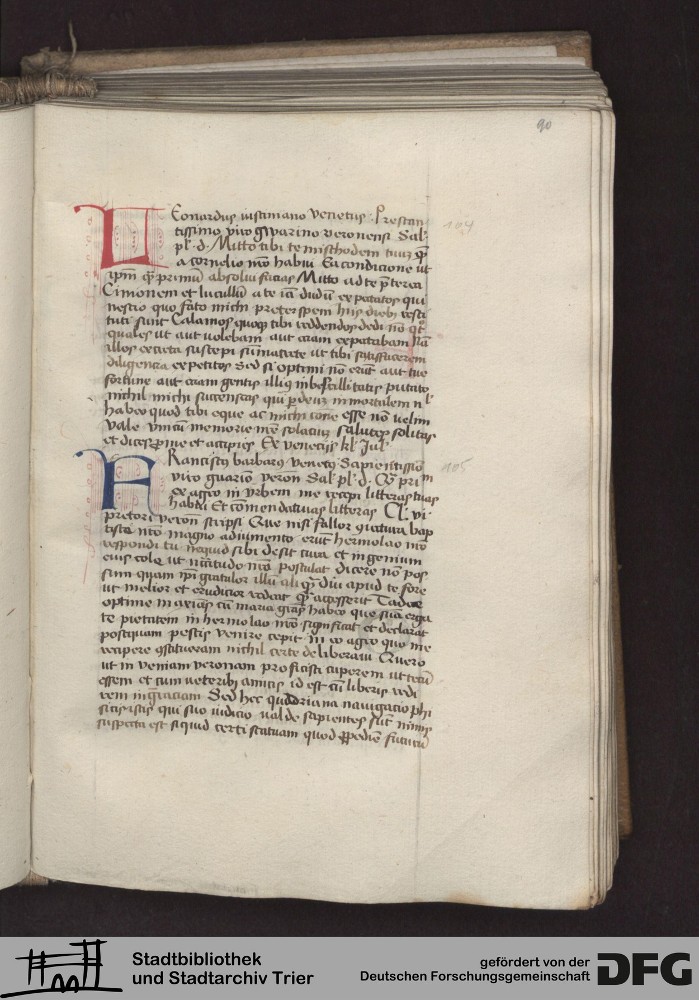 90
LEonardus iustiniano Venetus Prestan
tissimo viro gwarino veronensi Sal
pl d. Mitto tibi temischodem tuum
a cornelio meo habui Ea condicione ut
absolui facias Mitto ad te
Cimonem et lucullum a te iam dudum expetatos qui
nescio quo fato michi preter spem hiis diebus resti
tuti sunt Calamos quoque tibi reddendos dedi non
quales ut aut volebam aut etiam expetabam
illos suscepi ut tibi satisfacerem
diligencia expetitos Sed si optimi non erunt aut tue
fortune aut etiam gentis illius imbescillitatis putato
nichil michi succenseas qui per deum immortalem
habeo quod tibi eque ac michi esse non velim
Vale memorie mee solacium salutes solitas
et accipies Ex veneciis kl Jul
104
FRanciscus barbarus venetus Sapientissimo
viro guarino veron Sal pl d.
ex agro in urbem me recepi litteras tuas
habui Et comendativas litteras Cl. vi
pretori veron scripsi Que nisi fallor
magno adiumento erunt hermolao meo
respondi tu nequid sibi desit cura et ingenium
postulat dicere non pos
sum quam gratulor illum apud te fore
ut melior et erudicior redeat accesserit Tadee
optime cum maria habeo que suam erga
te pietatem in hermolao meo significat et declarat
postquam pestis venire cepit in eo agro quo me
recipere nichil certe deliberavi Quero
ut in veniam veronam proficisci cuperem ut tecum
essem et cum veteribus amicis id est cum liberis redi
rem in graciam Sed hec quadriana navigacio phi
qui suo iudicio valde sapientes sunt nimis
suspecta est siquid certi statuam quod futurum
105
Stadtbibliothek
und Stadtarchiv Trier
gefördert von der
Deutschen Forschungsgemeinschaft
DFG